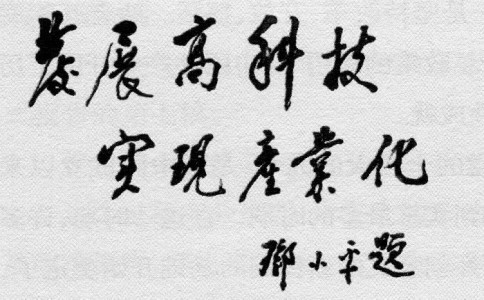 發展高科技
实現産業化
鄧小平題